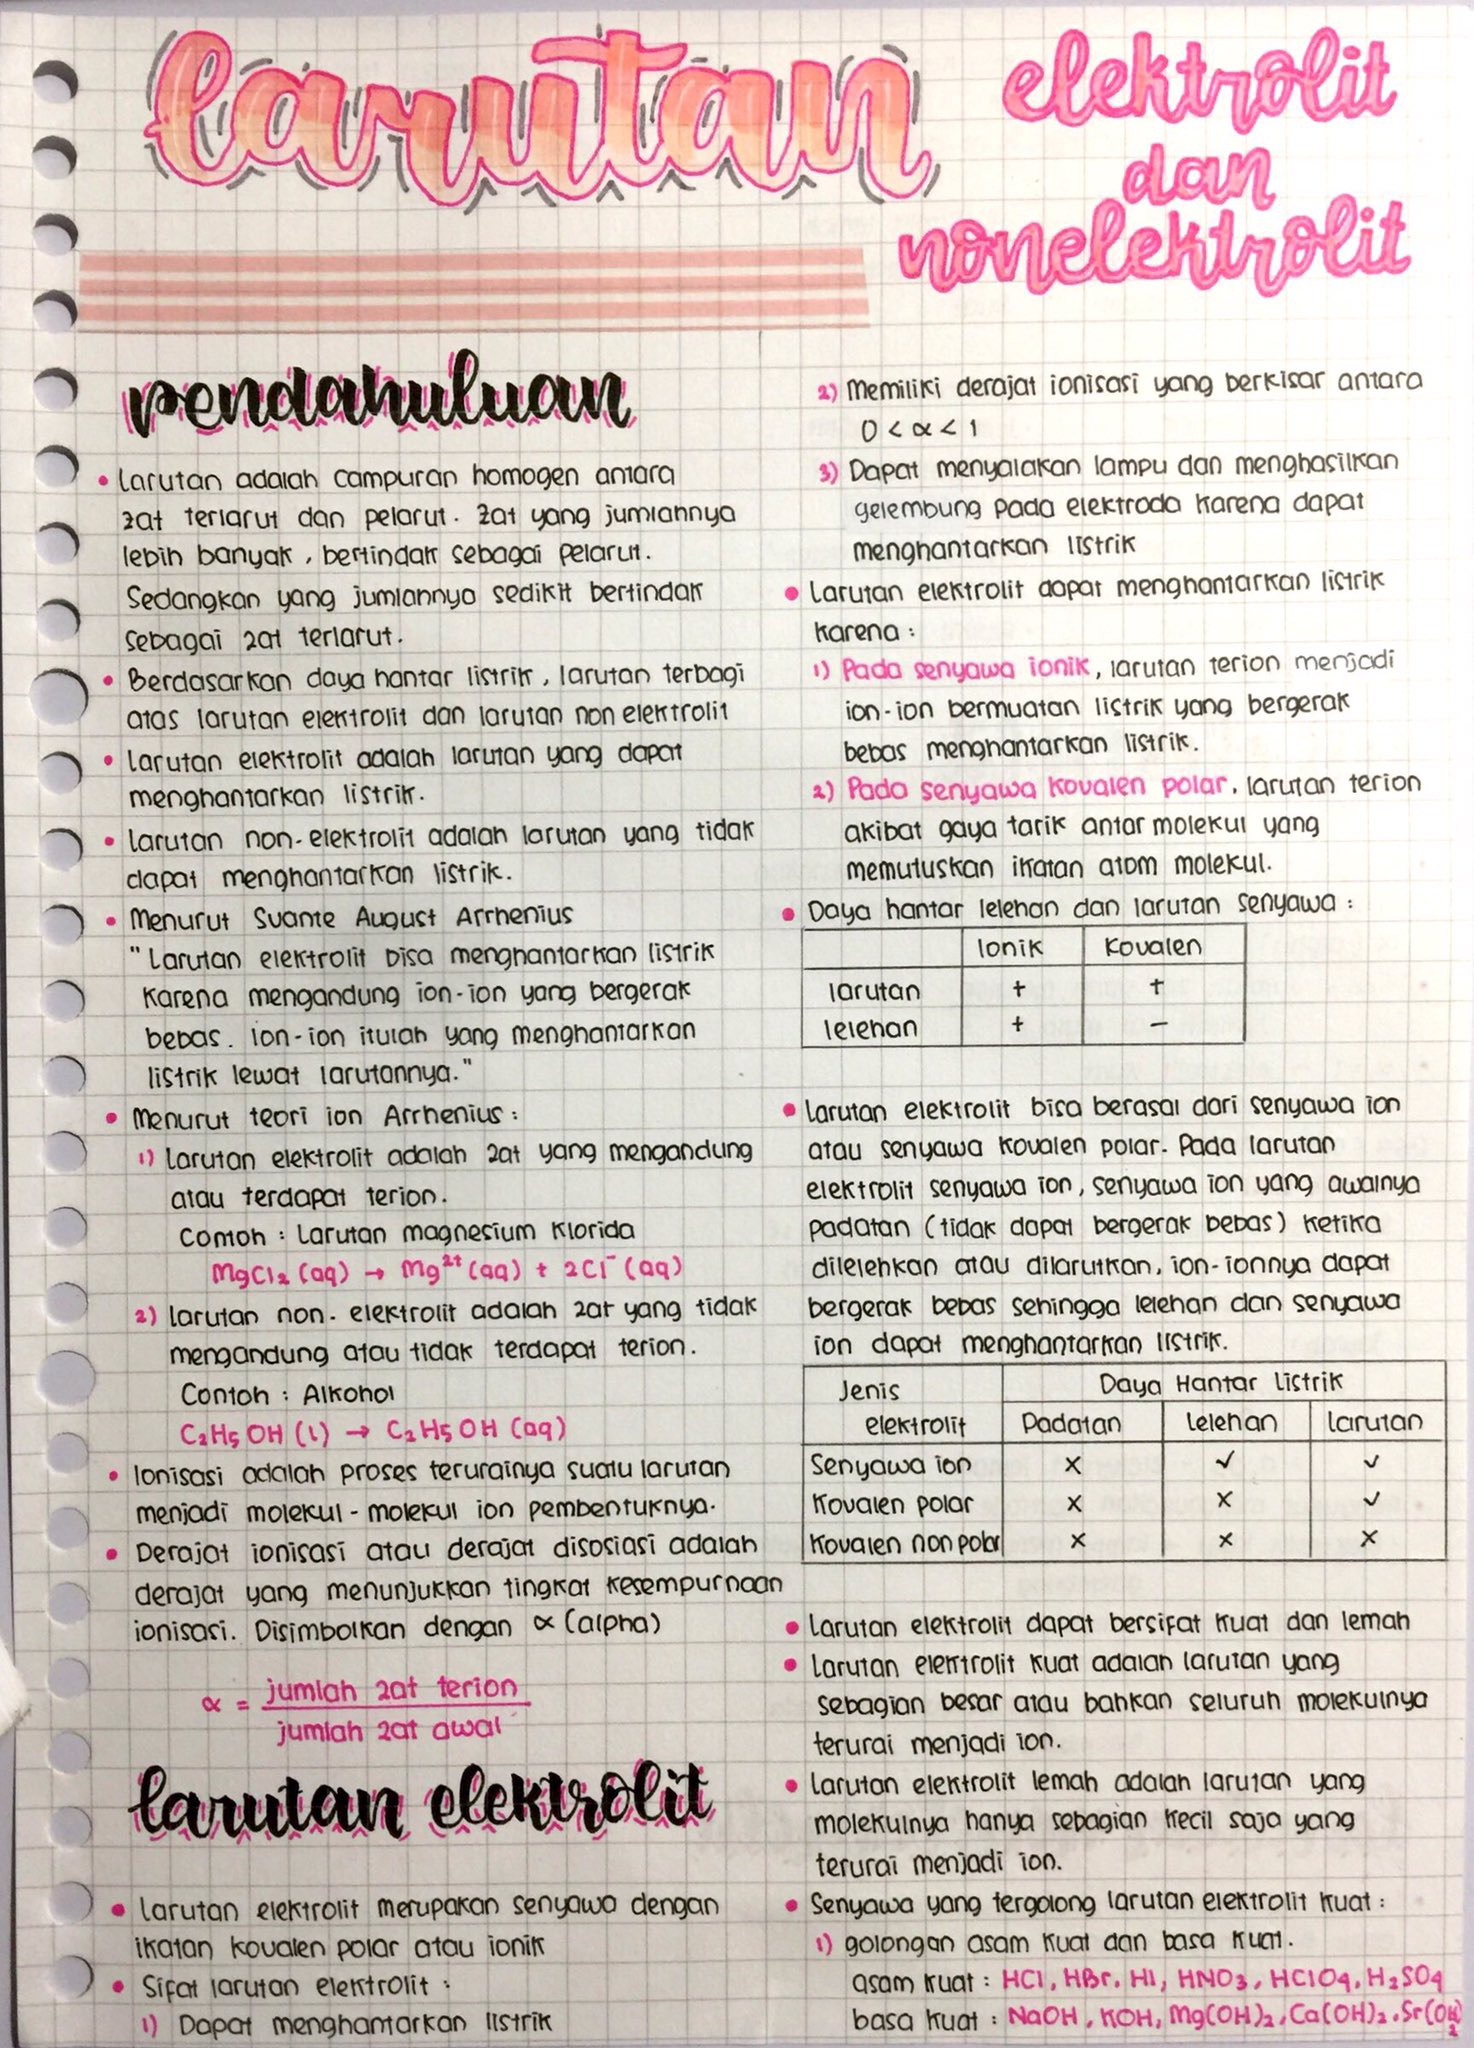 larutan
elektrolit
dan
nonelektrolit
pendahuluan
• Larutan adalah campuran homogen antara
zat terlarut dan pelarut. Zat yang jumlahnya
lebih banyak, bertindak sebagai pelarut.
Sedangkan yang jumlahnya sedikit bertindak
sebagai zat terlarut.
• Berdasarkan daya hantar listrik, larutan terbagi
atas larutan elektrolit dan larutan non elektrolit
• Larutan elektrolit adalah larutan yang dapat
menghantarkan listrik.
• Larutan non-elektrolit adalah larutan yang tidak
dapat menghantarkan listrik.
• Menurut Suante August Arrhenius
"Larutan elektrolit bisa menghantarkan listrik
karena mengandung ion-ion yang bergerak
bebas. Ion-ion itulah yang menghantarkan
listrik lewat larutannya."
• Menurut teori ion Arrhenius:
1) Larutan elektrolit adalah zat yang mengandung
atau terdapat terion.
Contoh : Larutan magnesium klorida
MgCl₂ (aq) → Mg²⁺ (aq) + 2Cl⁻ (aq)
2) Larutan non-elektrolit adalah zat yang tidak
mengandung atau tidak terdapat terion.
Contoh : Alkohol
C₂H₅OH (l) → C₂H₅OH (aq)
• Ionisasi adalah proses terurainya suatu larutan
menjadi molekul-molekul ion pembentuknya.
• Derajat ionisasi atau derajat disosiasi adalah
derajat yang menunjukkan tingkat kesempurnaan
ionisasi. Disimbolkan dengan α (alpha)
α = jumlah zat terion
jumlah zat awal
larutan elektrolit
• Larutan elektrolit merupakan senyawa dengan
ikatan kovalen polar atau ionik
• Sifat larutan elektrolit :
1) Dapat menghantarkan listrik
2) Memiliki derajat ionisasi yang berkisar antara
0 < α < 1
3) Dapat menyalakan lampu dan menghasilkan
gelembung pada elektroda karena dapat
menghantarkan listrik
• Larutan elektrolit dapat menghantarkan listrik
karena :
1) Pada senyawa ionik, larutan terion menjadi
ion-ion bermuatan listrik yang bergerak
bebas menghantarkan listrik.
2) Pada senyawa kovalen polar, larutan terion
akibat gaya tarik antar molekul yang
memutuskan ikatan atom molekul.
• Daya hantar lelehan dan larutan senyawa :
Ionik Kovalen
larutan + +
lelehan + -
• Larutan elektrolit bisa berasal dari senyawa ion
atau senyawa kovalen polar. Pada larutan
elektrolit senyawa ion, senyawa ion yang awalnya
padatan (tidak dapat bergerak bebas) ketika
dilelehkan atau dilarutkan, ion-ionnya dapat
bergerak bebas sehingga lelehan dan senyawa
ion dapat menghantarkan listrik.
Jenis Daya Hantar Listrik
elektrolit Padatan Lelehan Larutan
Senyawa ion x ✓ ✓
Kovalen polar x x ✓
Kovalen non polar x x x
• Larutan elektrolit dapat bersifat kuat dan lemah
• Larutan elektrolit kuat adalah larutan yang
sebagian besar atau bahkan seluruh molekulnya
terurai menjadi ion.
• Larutan elektrolit lemah adalah larutan yang
molekulnya hanya sebagian kecil saja yang
terurai menjadi ion.
• Senyawa yang tergolong larutan elektrolit kuat :
1) golongan asam kuat dan basa kuat.
asam kuat : HCl, HBr, HI, HNO₃, HClO₄, H₂SO₄
basa kuat : NaOH, KOH, Mg(OH)₂, Ca(OH)₂, Sr(OH)₂